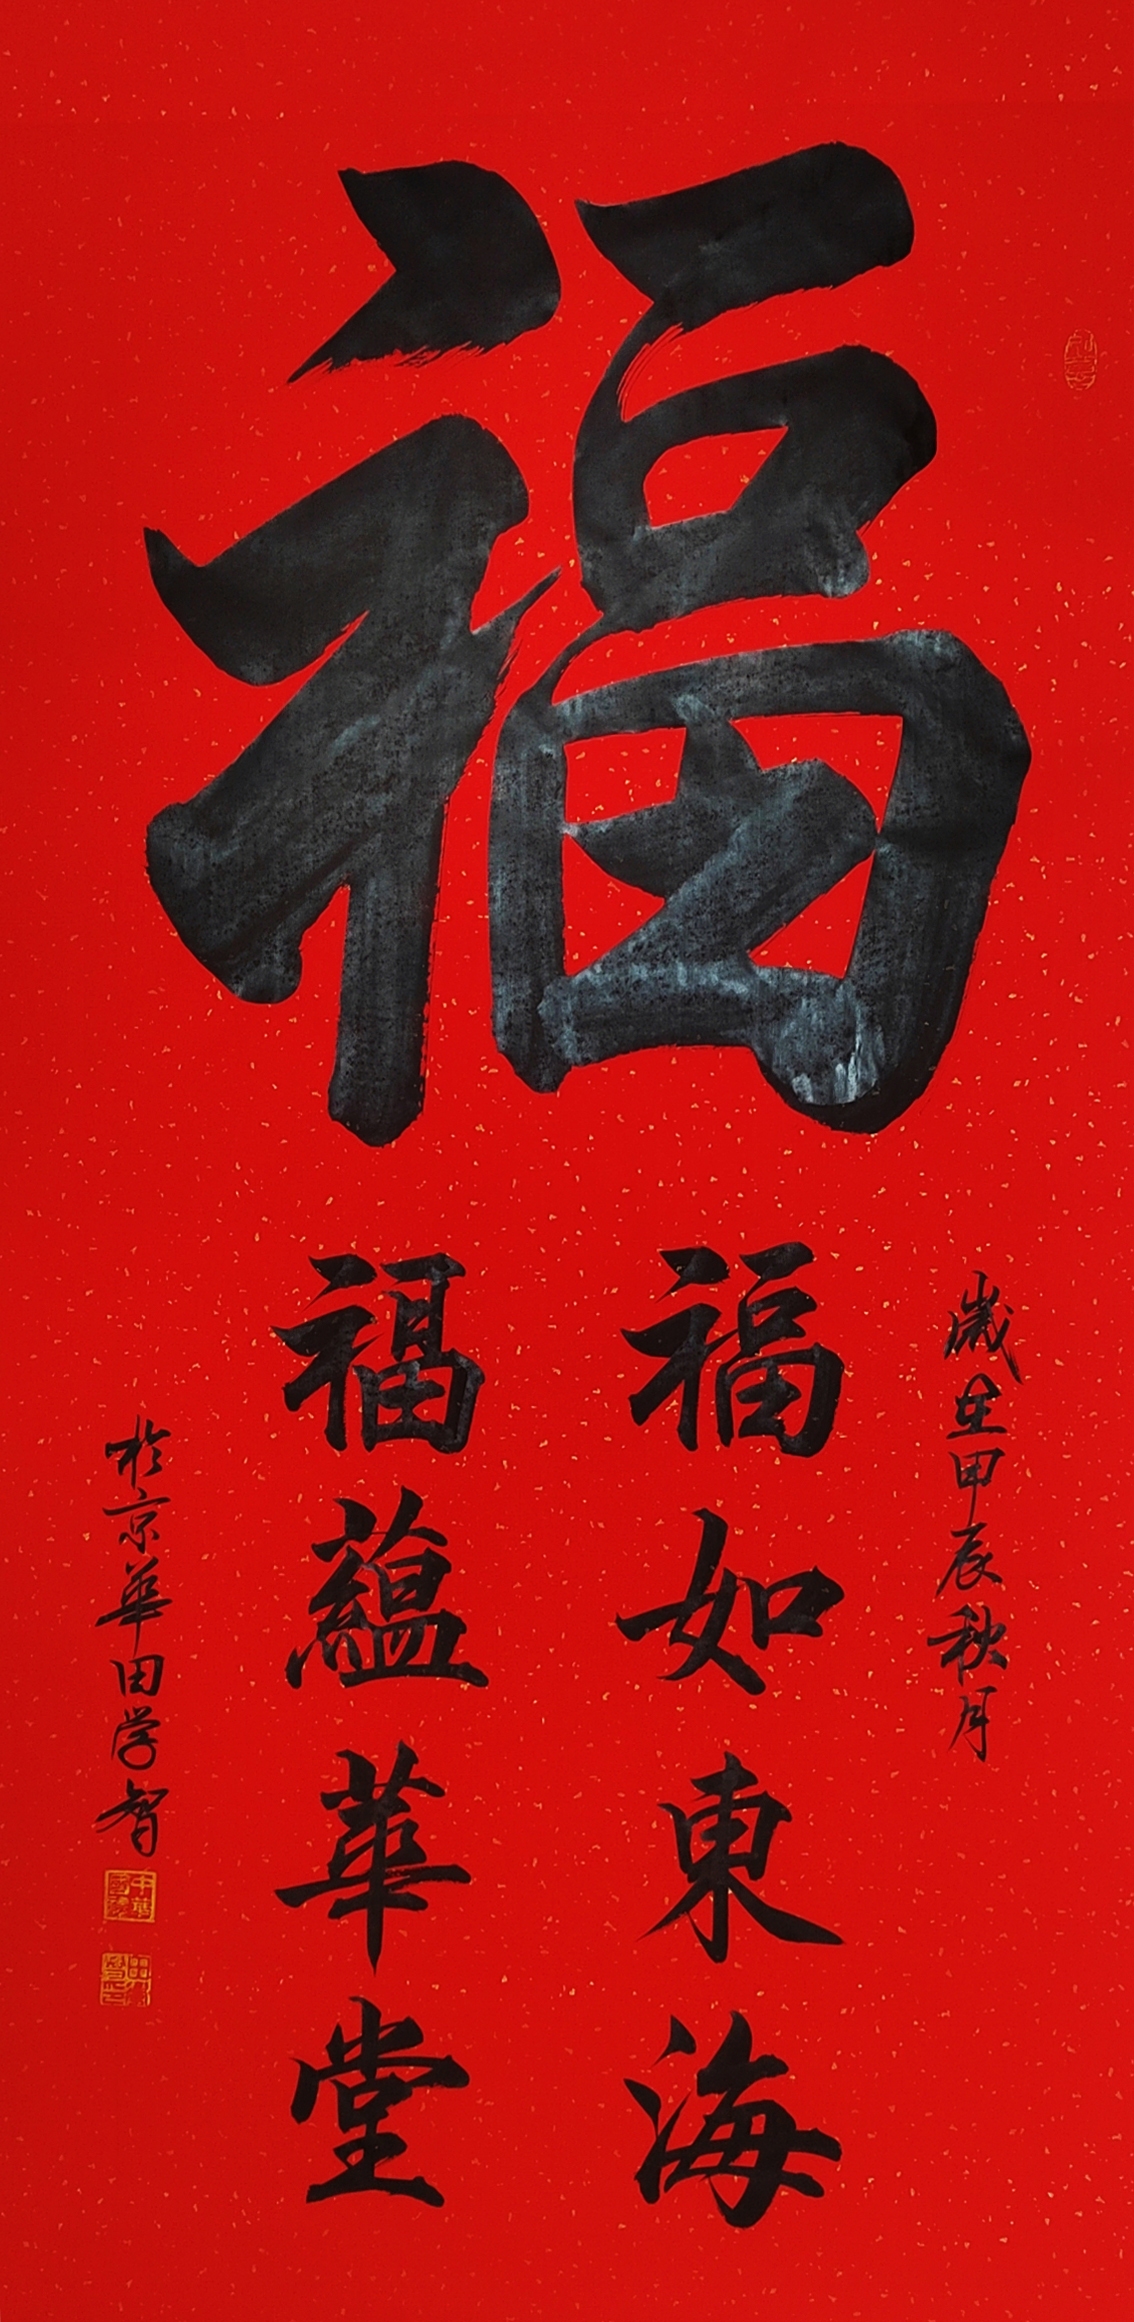 福
歲在甲辰秋月
福如東海
福蘊華堂
於京華田学智